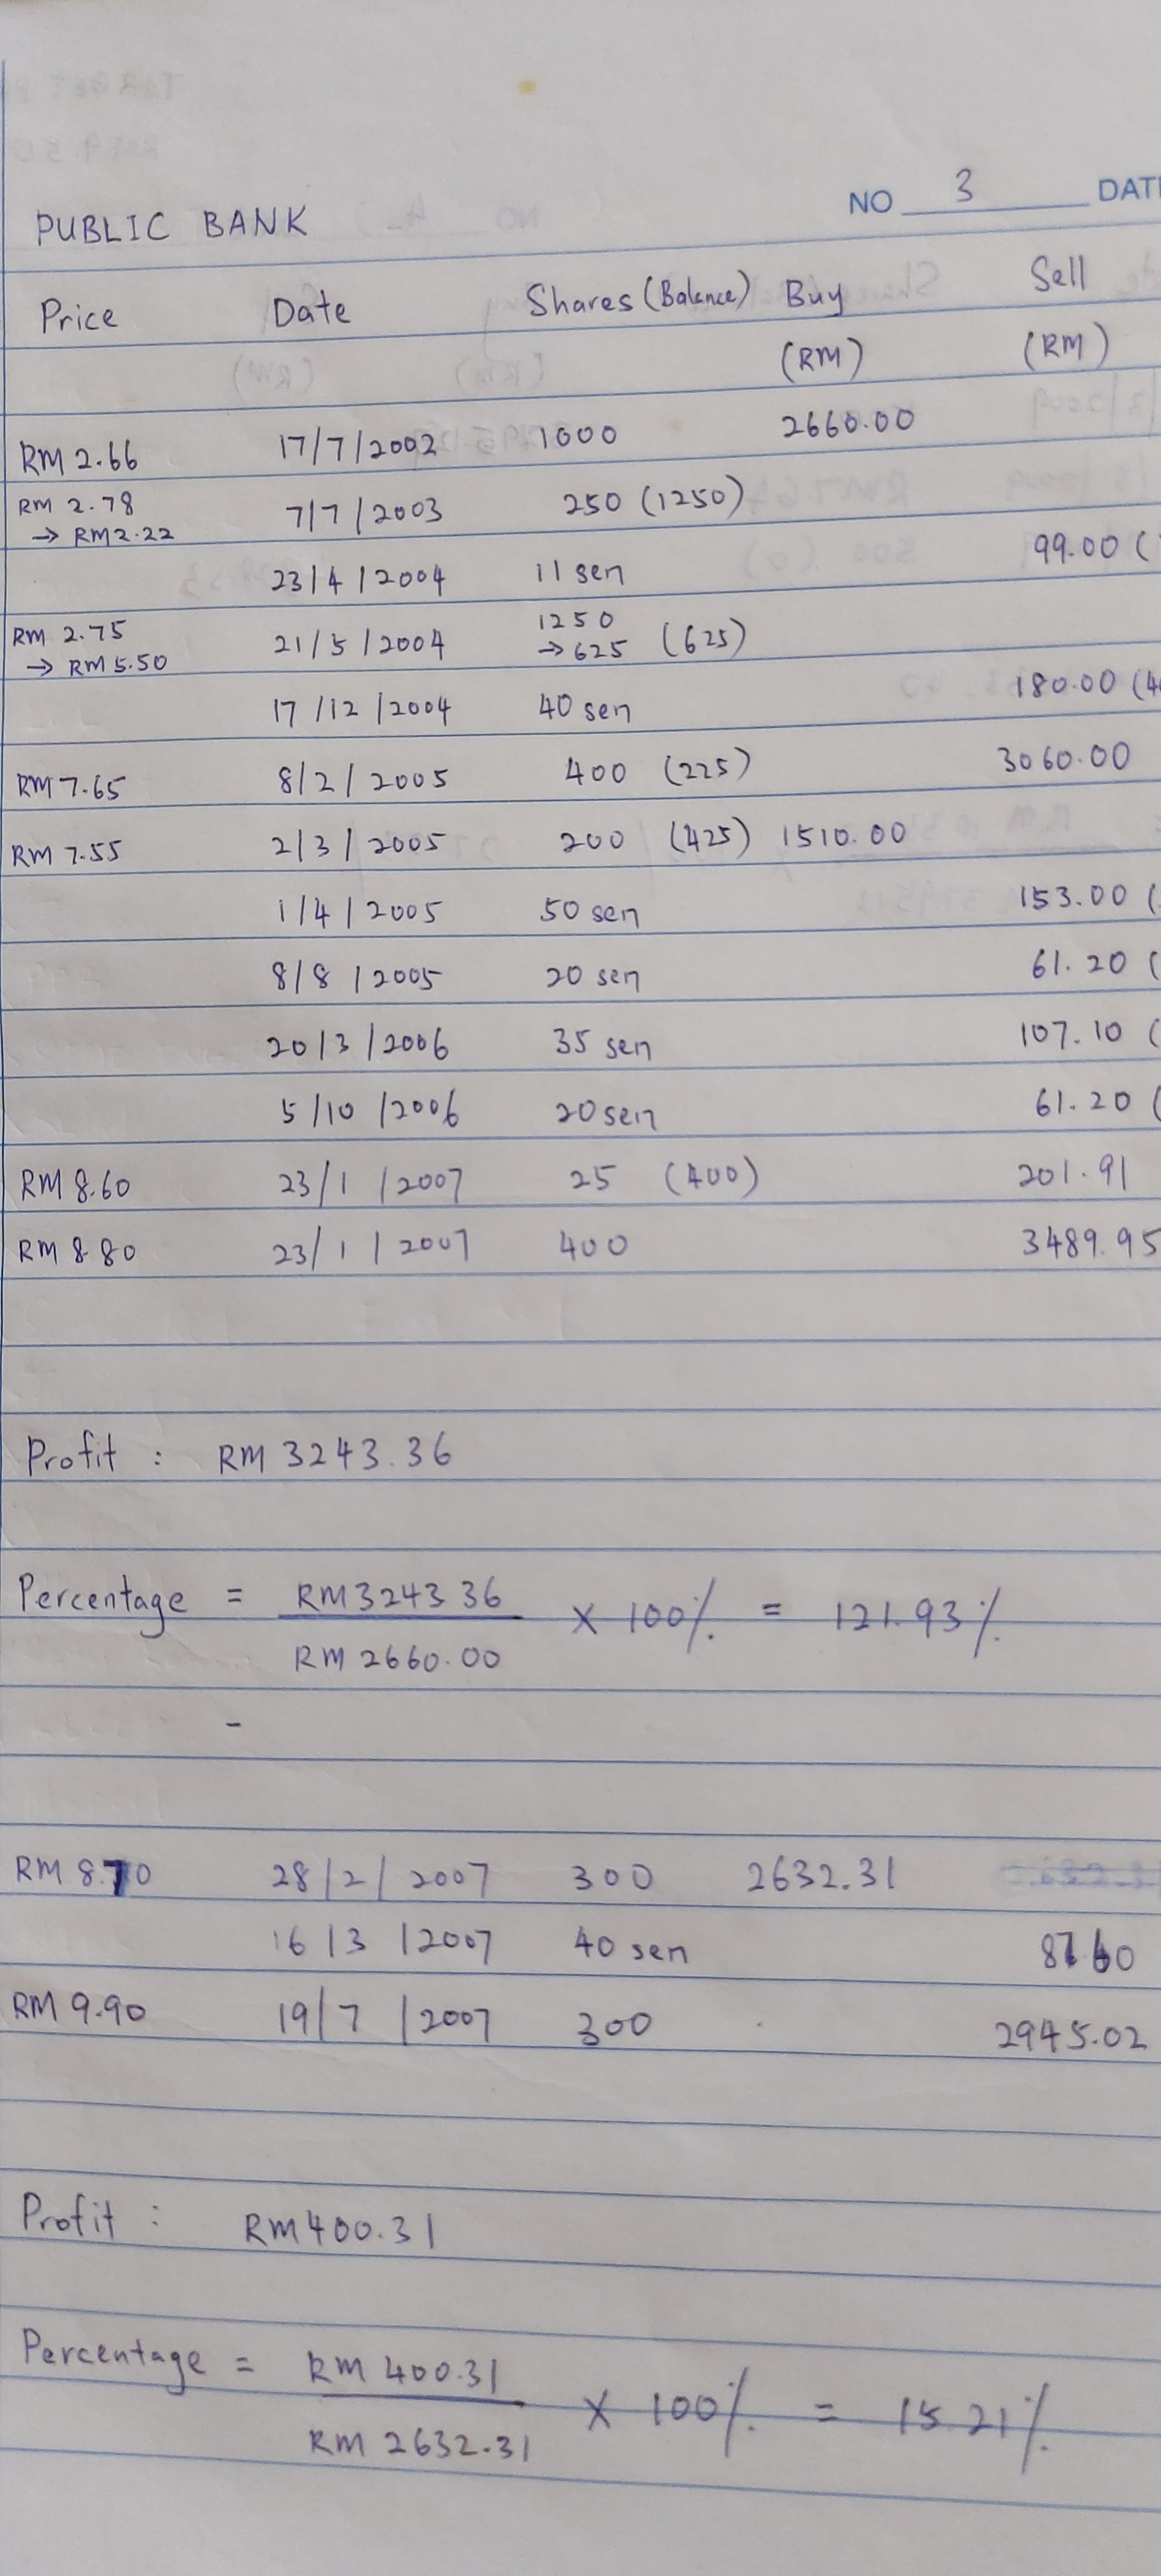 NO 3 DATE
PUBLIC BANK
Price Date Shares (Balance) Buy Sell
(RM) (RM)
RM 2.66 17/7/2002 1000 2660.00
RM 2.78 → RM2.22 7/7/2003 250 (1250)
23/4/2004 11 sen 99.00 (
RM 2.75 → RM 5.50 21/5/2004 1250 → 625 (625)
17/12/2004 40 sen 180.00 (4
RM 7.65 8/2/2005 400 (225) 3060.00
RM 7.55 2/3/2005 200 (425) 1510.00
1/4/2005 50 sen 153.00 (
8/8/2005 20 sen 61.20 (
20/3/2006 35 sen 107.10 (
5/10/2006 20 sen 61.20 (
RM 8.60 23/1/2007 25 (400) 201.91
RM 8.80 23/1/2007 400 3489.95
Profit : RM 3243.36
Percentage = RM3243.36 × 100% = 121.93%
RM 2660.00
-
RM 8.70 28/2/2007 300 2632.31
16/3/2007 40 sen 87.60
RM 9.90 19/7/2007 300 2945.02
Profit : RM400.31
Percentage = RM 400.31 × 100% = 15.21%
RM 2632.31